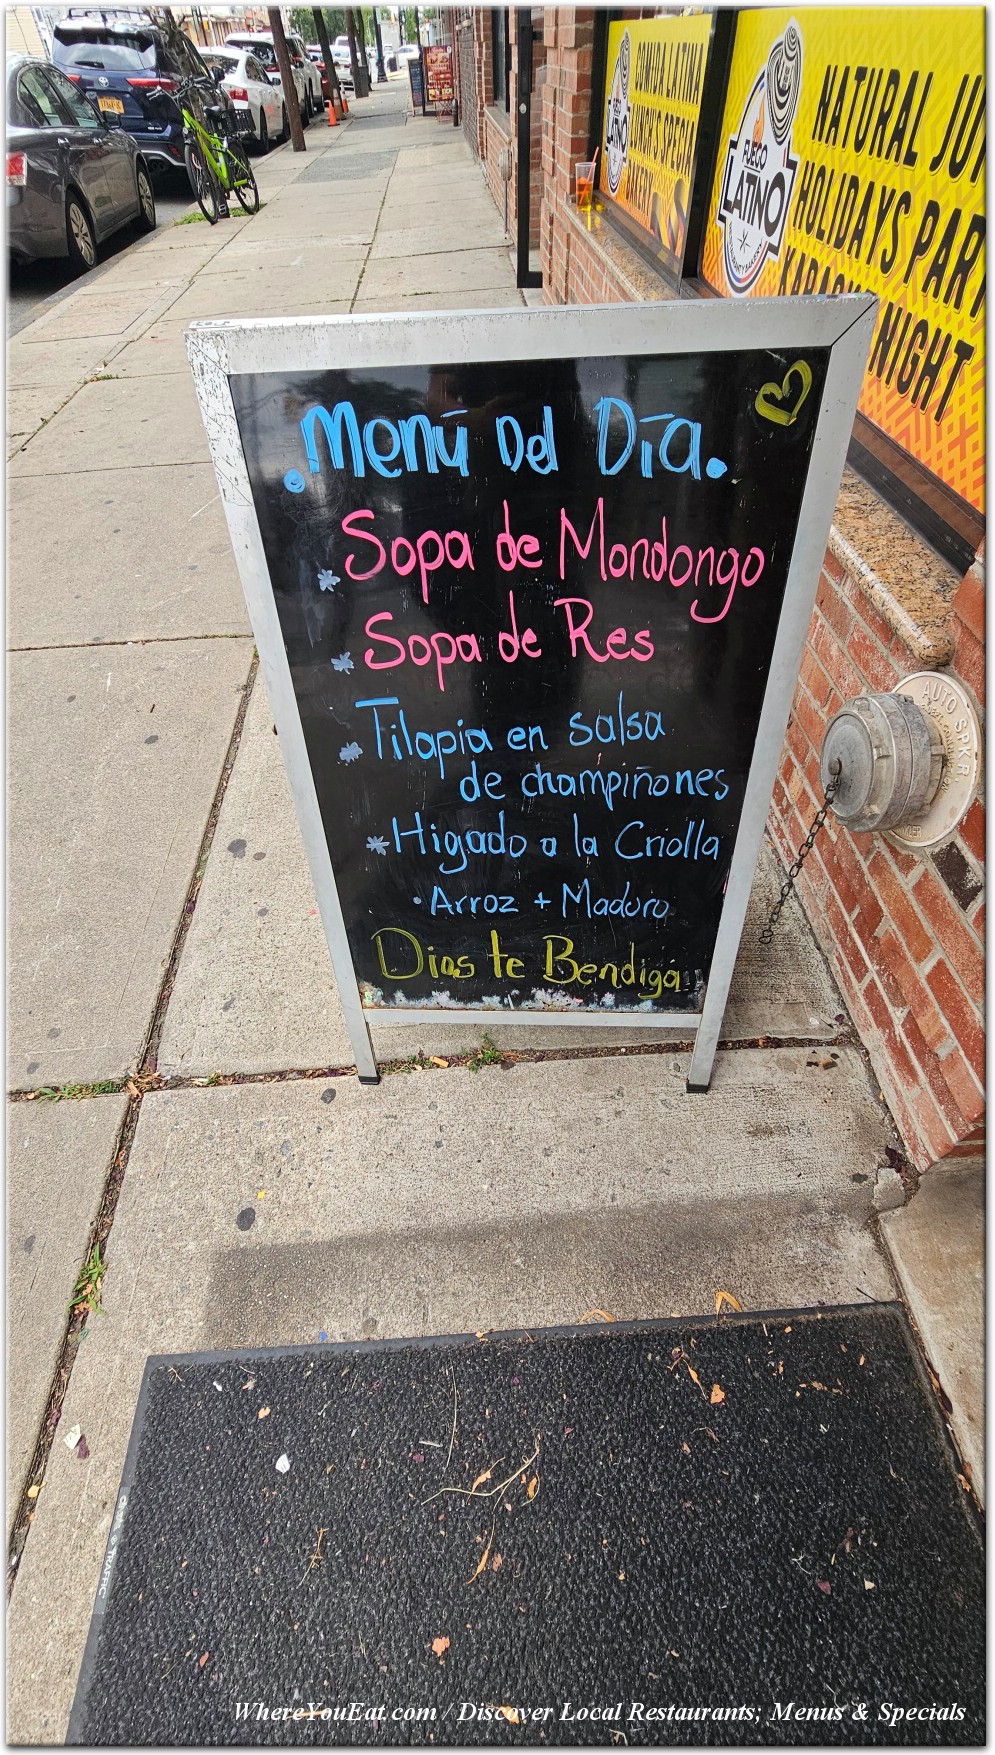 COMIDA LATINA
LUNCH'S SPECIAL
FUEGO
LATINO
NATURAL
HOLIDAYS
NIGHT
Menú Del Día.
Sopa de Mondongo
Sopa de Res
Tilapia en salsa
de champiñones
Higado a la Criolla
Arroz + Maduro
Dios te Bendiga
AUTO SPKR
WhereYouEat.com / Discover Local Restaurants; Menus & Specials